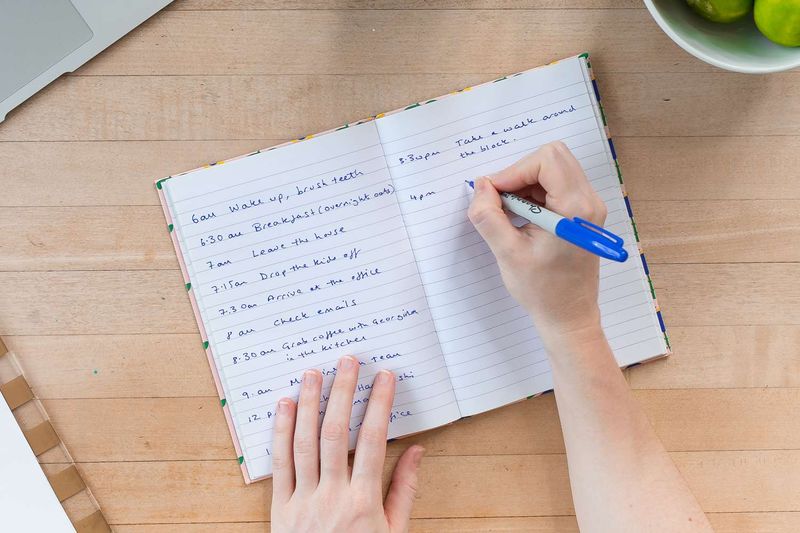 6am Wake up, brush teeth
6.30am Breakfast (overnight oats)
7am Leave the house
7.15am Drop the kids off
7.30am Arrive at the office
8am Check emails
8.30am Grab coffee with Georgina
in the kitchen
9.am team
12.
office
3.30pm Take a walk around
the block.
4pm